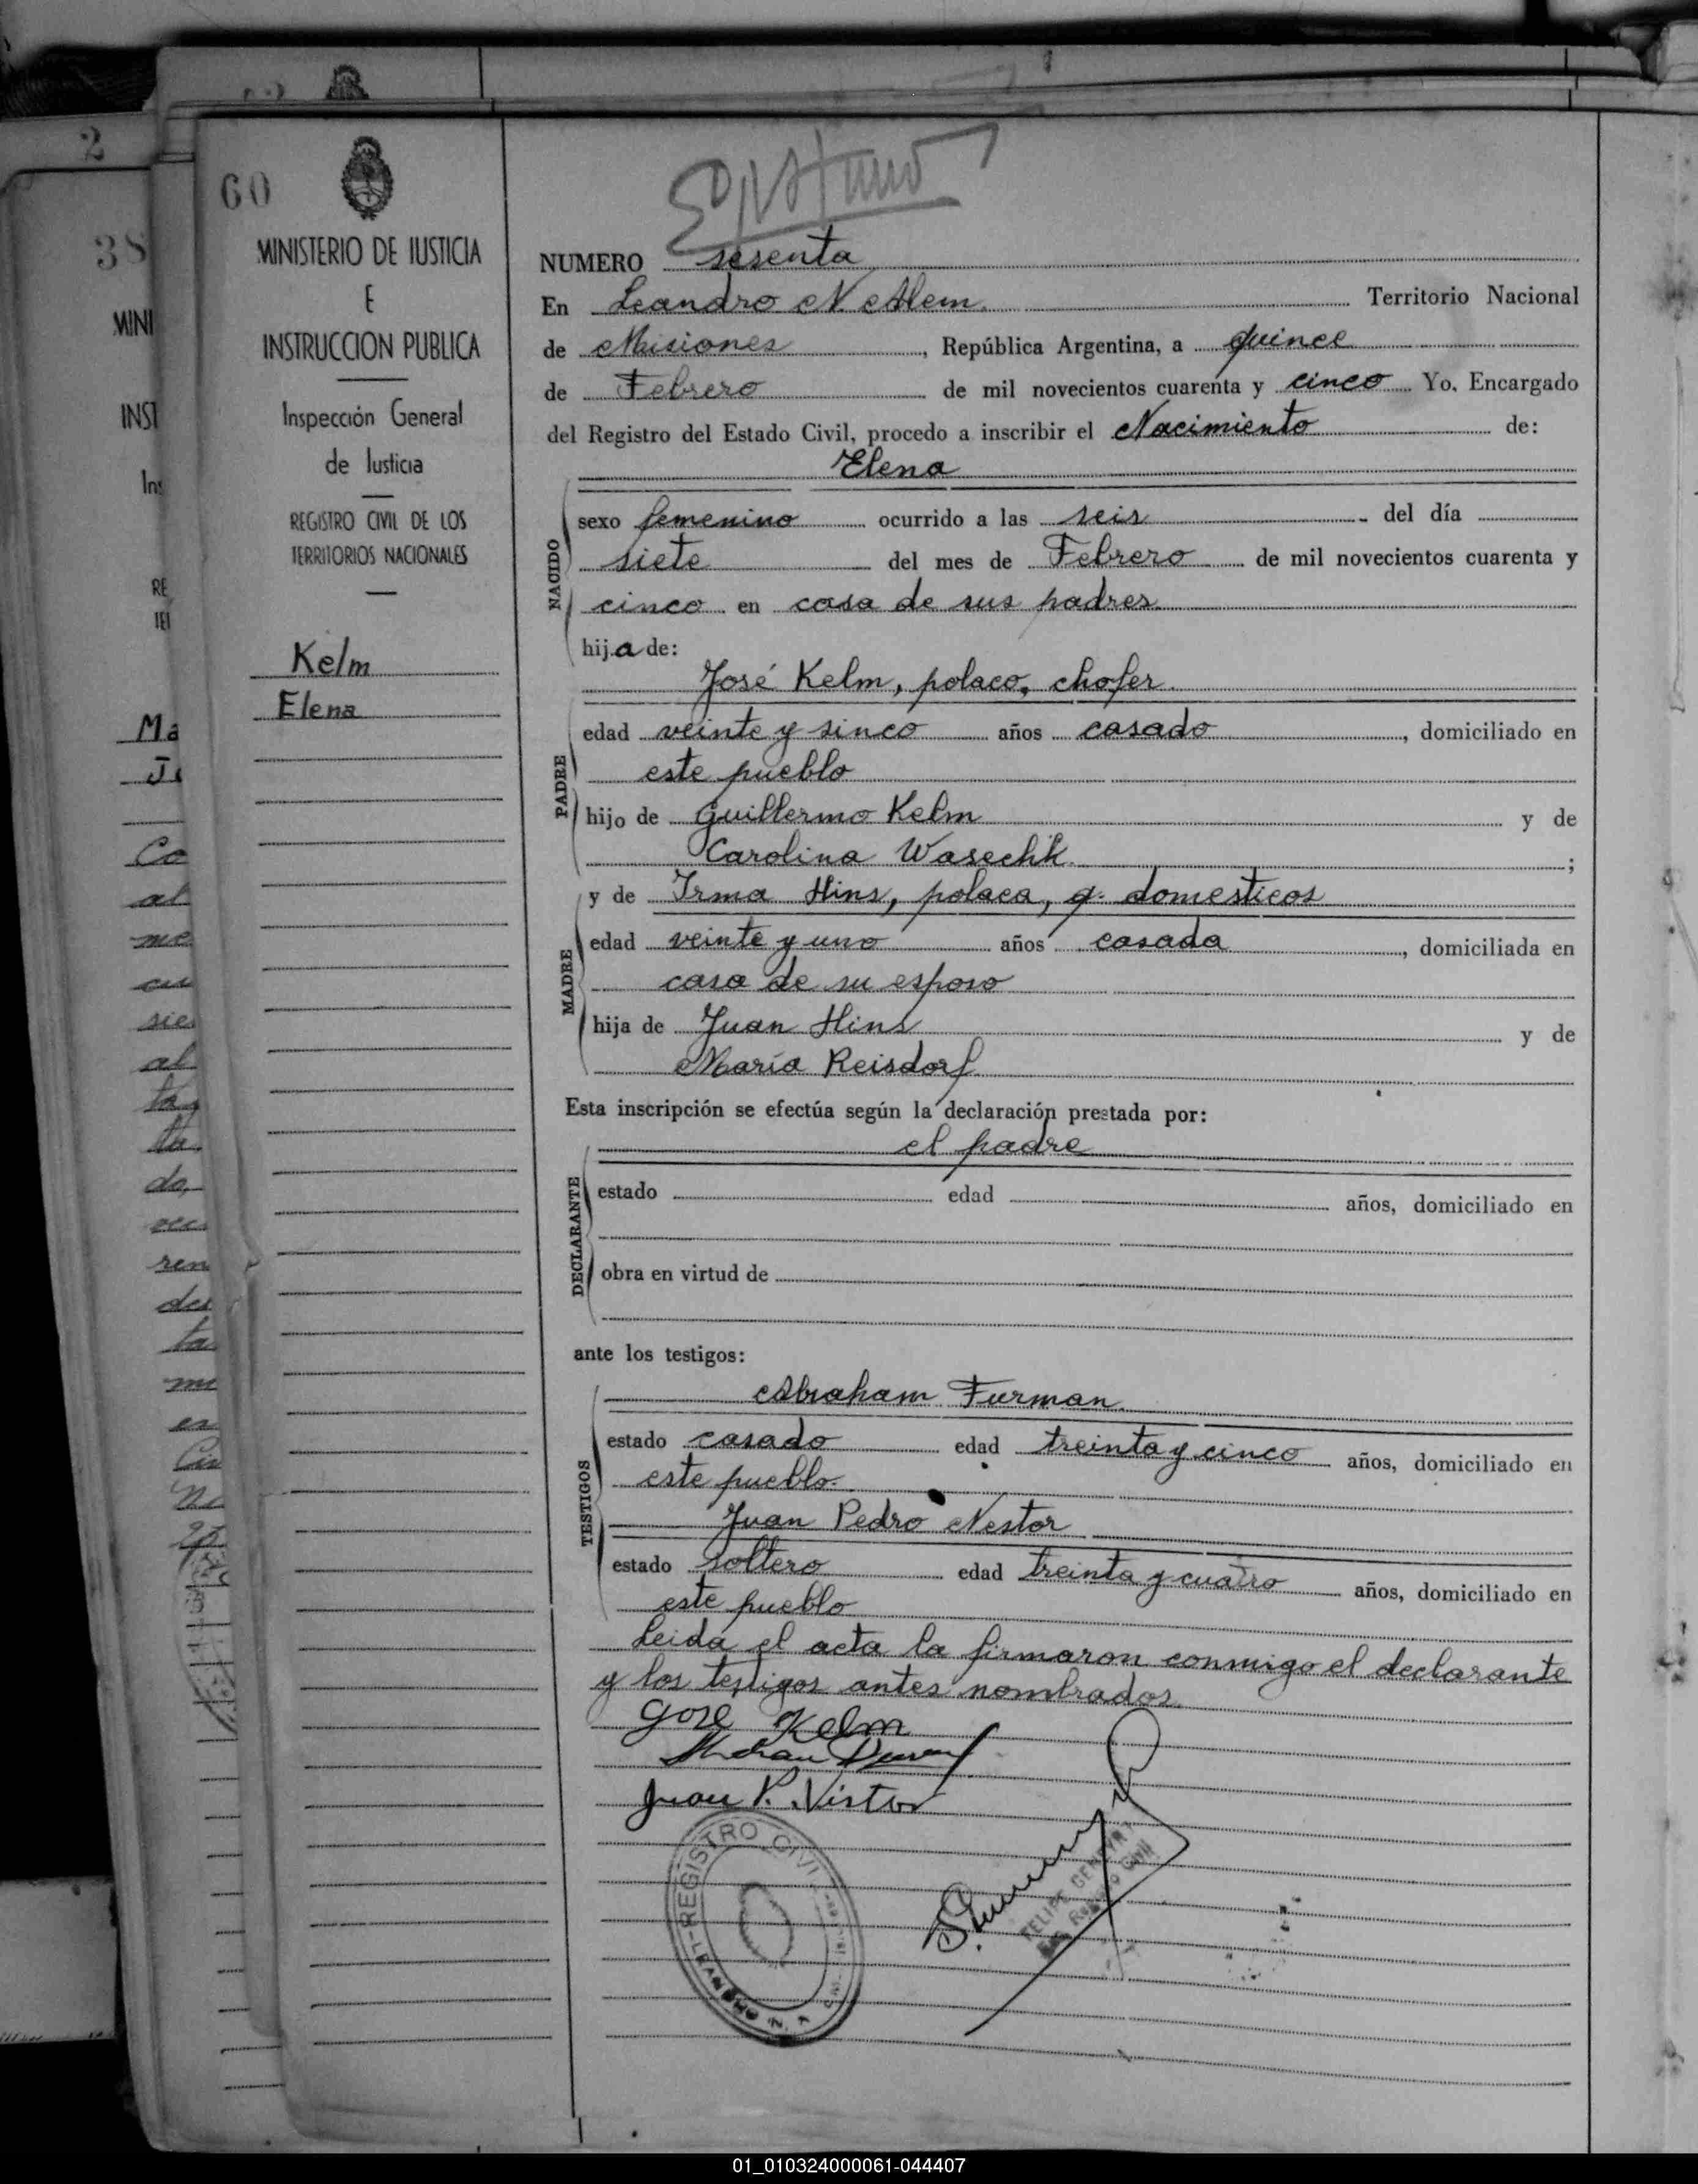 2
38
MINI
INST
Ins
RE
TEI
Ma
Co
al
me
cu
sie
al
ta
do,
ren
des
ta
es
60
MINISTERIO DE JUSTICIA
E
INSTRUCCION PUBLICA
Inspección General
de Justicia
REGISTRO CIVIL DE LOS
TERRITORIOS NACIONALES
Kelm
Elena
NUMERO sesenta
En Leandro N Alem. Territorio Nacional
de Misiones, República Argentina, a quince
de Febrero de mil novecientos cuarenta y cinco Yo, Encargado
del Registro del Estado Civil, procedo a inscribir el Nacimiento de:
Elena
NACIDO
sexo femenino ocurrido a las seis del día
siete del mes de Febrero de mil novecientos cuarenta y
cinco en casa de sus padres.
hija de:
José Kelm, polaco, chofer.
PADRE
edad veinte y sinco años casado, domiciliado en
este pueblo
hijo de Guillermo Kelm y de
Carolina Wasechk.;
MADRE
y de Irma Hins, polaca, q. domesticos
edad veinte y uno años casada, domiciliada en
casa de su esposo
hija de Juan Hins y de
María Reisdorf
Esta inscripción se efectúa según la declaración prestada por:
el padre
DECLARANTE
estado edad años, domiciliado en
obra en virtud de
ante los testigos:
TESTIGOS
Abraham Furman.
estado casado edad treinta y cinco años, domiciliado en
este pueblo.
Juan Pedro Nestor
estado soltero edad treinta y cuatro años, domiciliado en
este pueblo
Leida el acta la firmaron conmigo el declarante
y los testigos antes nombrados.
Jose Kelm
Juan P. Nistor
REGISTRO CIVIL
LEANDRO N. A
FELIPE
Enc. Registro Civil
01_010324000061-044407